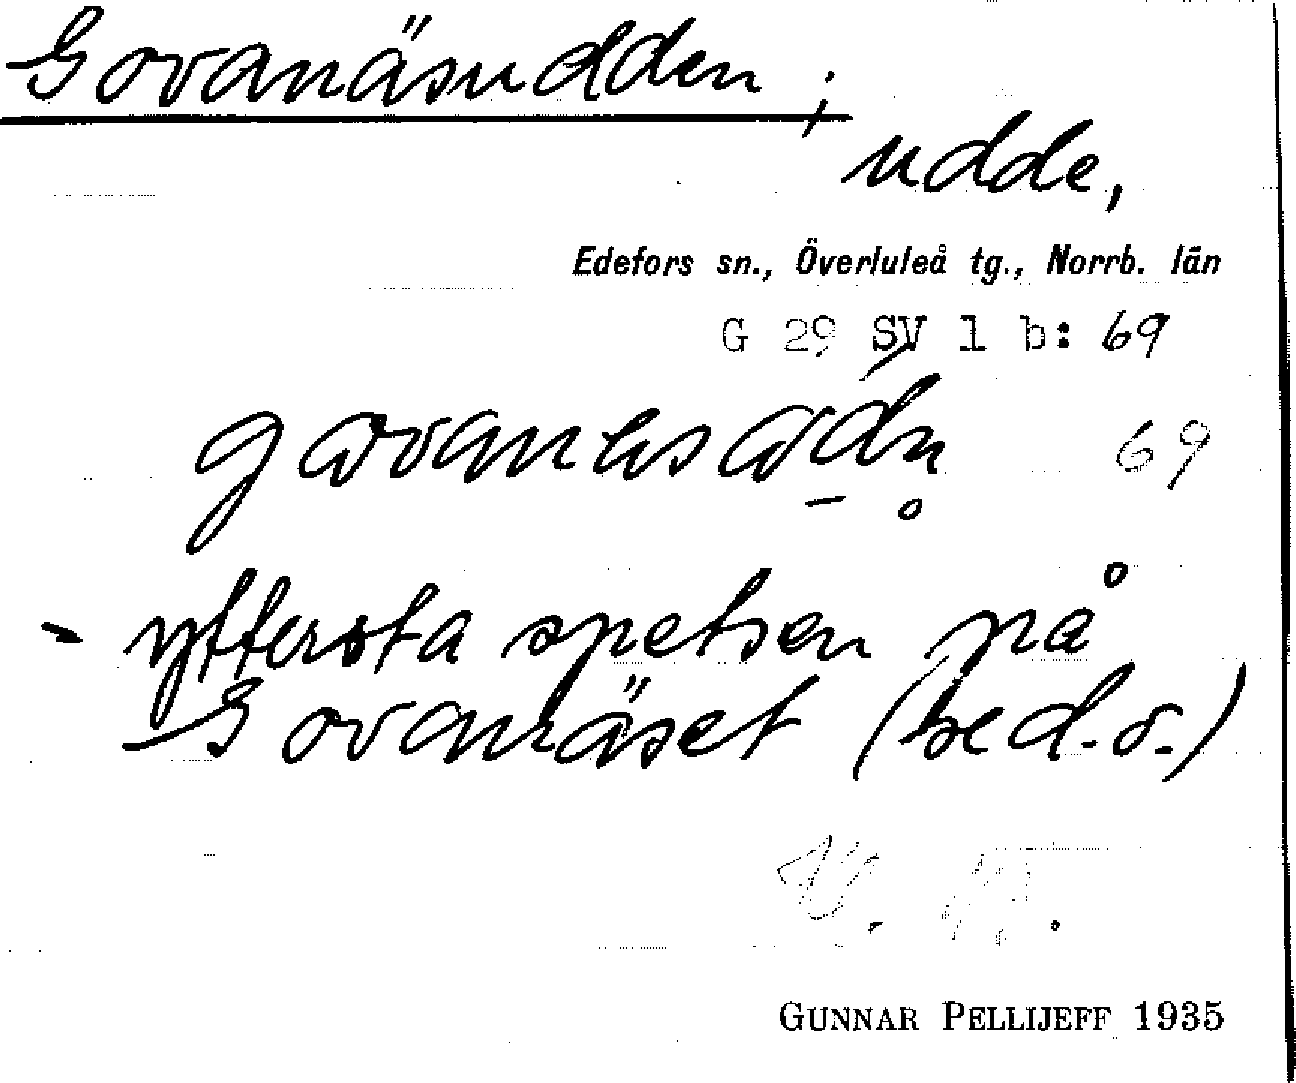 Govanäsudden ;
udde,
Edefors sn., Överluleå tg., Norrb. län
G 29 SV 1 b: 69
69
- yttersta spetsen på
Govanäset (sed. o.)
GUNNAR PELLIJEFF 1935